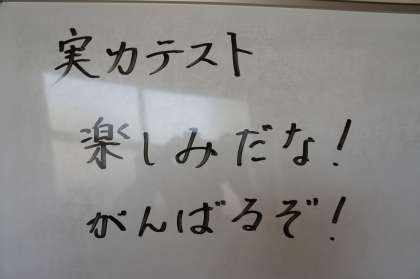 実力テスト
楽しみだな!
がんばるぞ!